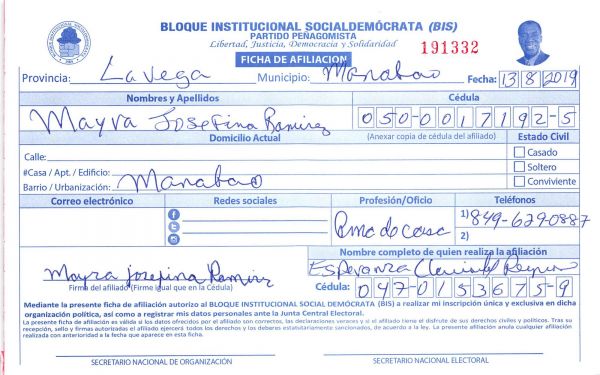 BLOQUE INSTITUCIONAL SOCIALDEMÓCRATA (BIS)
PARTIDO PEÑAGOMISTA
Libertad, Justicia, Democracia y Solidaridad
FICHA DE AFILIACIÓN
191332
Provincia: La vega Municipio: Manabao Fecha: 13/8/2019
Nombres y Apellidos Cédula
Mayra Josefina Ramirez 050-0017192-5
Domicilio Actual (Anexar copia de cédula del afiliado) Estado Civil
Calle: Casado
#Casa / Apt. / Edificio: Soltero
Barrio / Urbanización: Manabao Conviviente
Correo electrónico Redes sociales Profesión/Oficio Teléfonos
Ama de casa 1) 849-629-0887
2)
Nombre completo de quien realiza la afiliación
Mayra josefina Ramirez Esperanza
Firma del afiliado (Firme igual que en la Cédula) Cédula: 047-0153675-9
Mediante la presente ficha de afiliación autorizo al BLOQUE INSTITUCIONAL SOCIAL DEMÓCRATA (BIS) a realizar mi inscripción única y exclusiva en dicha
organización política, así como a registrar mis datos personales ante la Junta Central Electoral.
La presente afiliación es válida si los datos ofrecidos por el afiliado son correctos, las declaraciones veraces y si el afiliado tiene el disfrute de sus derechos civiles y políticos. Tras su
recepción, sello y firmas autorizadas el afiliado ejercerá todos los derechos y los deberes estatutariamente sancionados, de acuerdo a la ley. La presente afiliación anula cualquier afiliación
realizada con anterioridad a la fecha que aparece en esta ficha.
SECRETARIO NACIONAL DE ORGANIZACIÓN SECRETARIO NACIONAL ELECTORAL